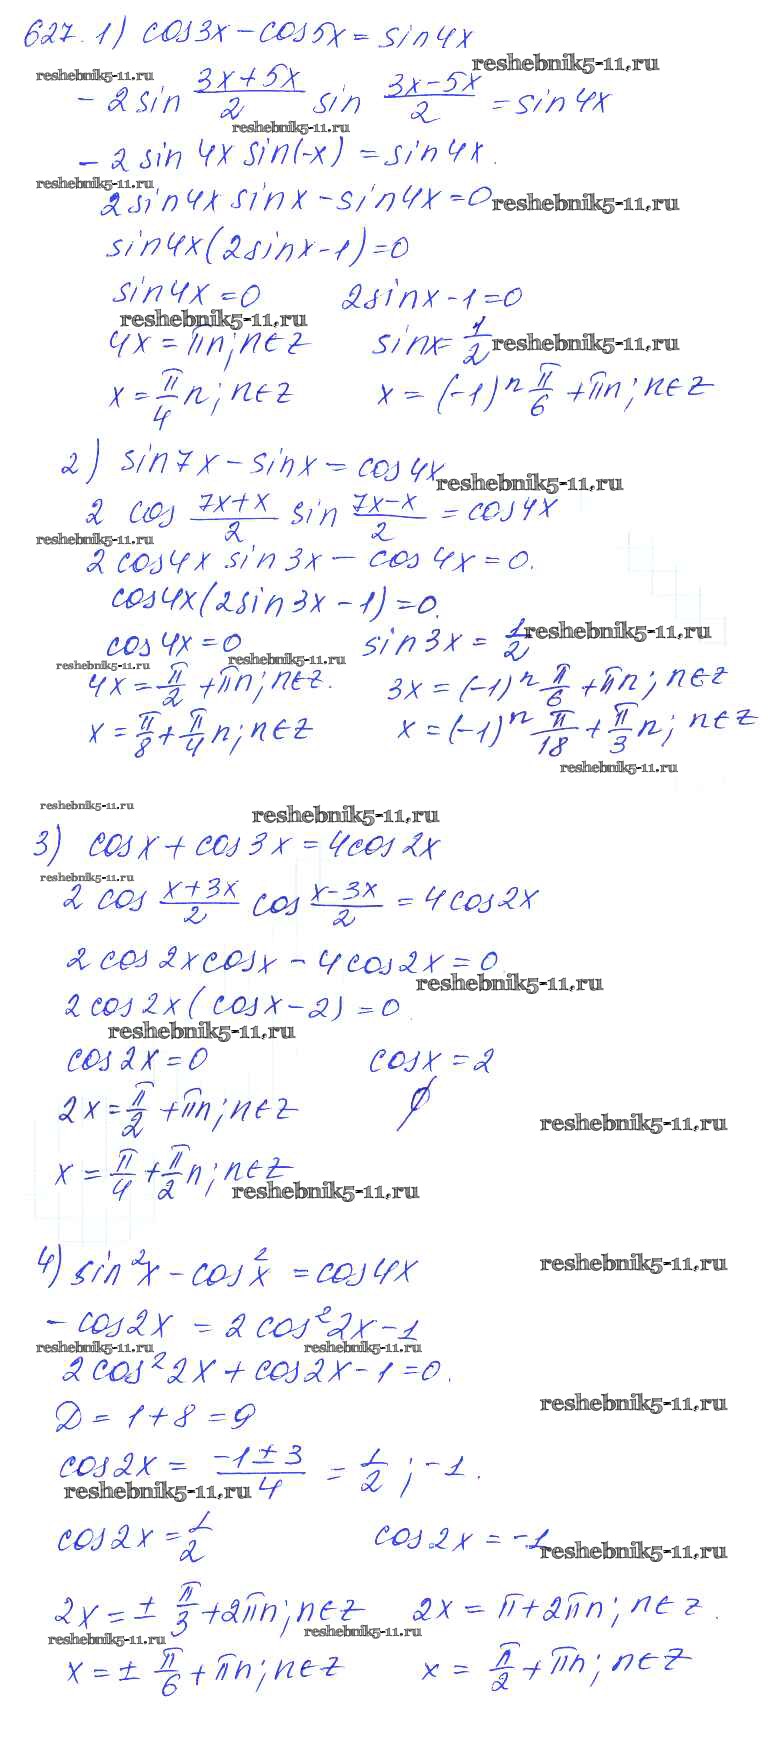 627. 1) cos3x − cos5x = sin4x
reshebnik5-11.ru
reshebnik5-11.ru
− 2 sin (3x+5x)/2 sin (3x−5x)/2 = sin4x
reshebnik5-11.ru
− 2 sin 4x sin(−x) = sin4x.
reshebnik5-11.ru
2sin4x sinx − sin4x = 0
reshebnik5-11.ru
sin4x(2sinx−1)=0
sin4x = 0 2sinx−1=0
reshebnik5-11.ru
4x = πn; n∈Z sinx = 1/2
reshebnik5-11.ru
x = π/4 n; n∈Z x = (−1)ⁿ π/6 + πn; n∈Z
2) sin7x − sinx = cos4x
reshebnik5-11.ru
2 cos (7x+x)/2 sin (7x−x)/2 = cos4x
reshebnik5-11.ru
2cos4x sin3x − cos4x = 0.
cos4x(2sin3x − 1) = 0.
cos4x = 0 sin3x = 1/2
reshebnik5-11.ru
reshebnik5-11.ru
reshebnik5-11.ru
4x = π/2 + πn; n∈Z. 3x = (−1)ⁿ π/6 + πn; n∈Z
x = π/8 + π/4 n; n∈Z x = (−1)ⁿ π/18 + π/3 n; n∈Z
reshebnik5-11.ru
reshebnik5-11.ru
reshebnik5-11.ru
3) cosx + cos3x = 4cos2x
reshebnik5-11.ru
2 cos (x+3x)/2 cos (x−3x)/2 = 4cos2x
2 cos2x cosx − 4cos2x = 0
reshebnik5-11.ru
2cos2x(cosx−2) = 0.
reshebnik5-11.ru
cos2x = 0 cosx = 2
2x = π/2 + πn; n∈Z ∅
reshebnik5-11.ru
x = π/4 + π/2 n; n∈Z
reshebnik5-11.ru
4) sin²x − cos²x = cos4x
reshebnik5-11.ru
− cos2x = 2cos²2x−1
reshebnik5-11.ru
reshebnik5-11.ru
2cos²2x + cos2x − 1 = 0.
reshebnik5-11.ru
D = 1+8 = 9
cos2x = (−1±3)/4 = 1/2; −1.
reshebnik5-11.ru
cos2x = 1/2 cos2x = −1
reshebnik5-11.ru
2x = ± π/3 + 2πn; n∈Z 2x = π + 2πn; n∈Z.
reshebnik5-11.ru
reshebnik5-11.ru
x = ± π/6 + πn; n∈Z x = π/2 + πn; n∈Z